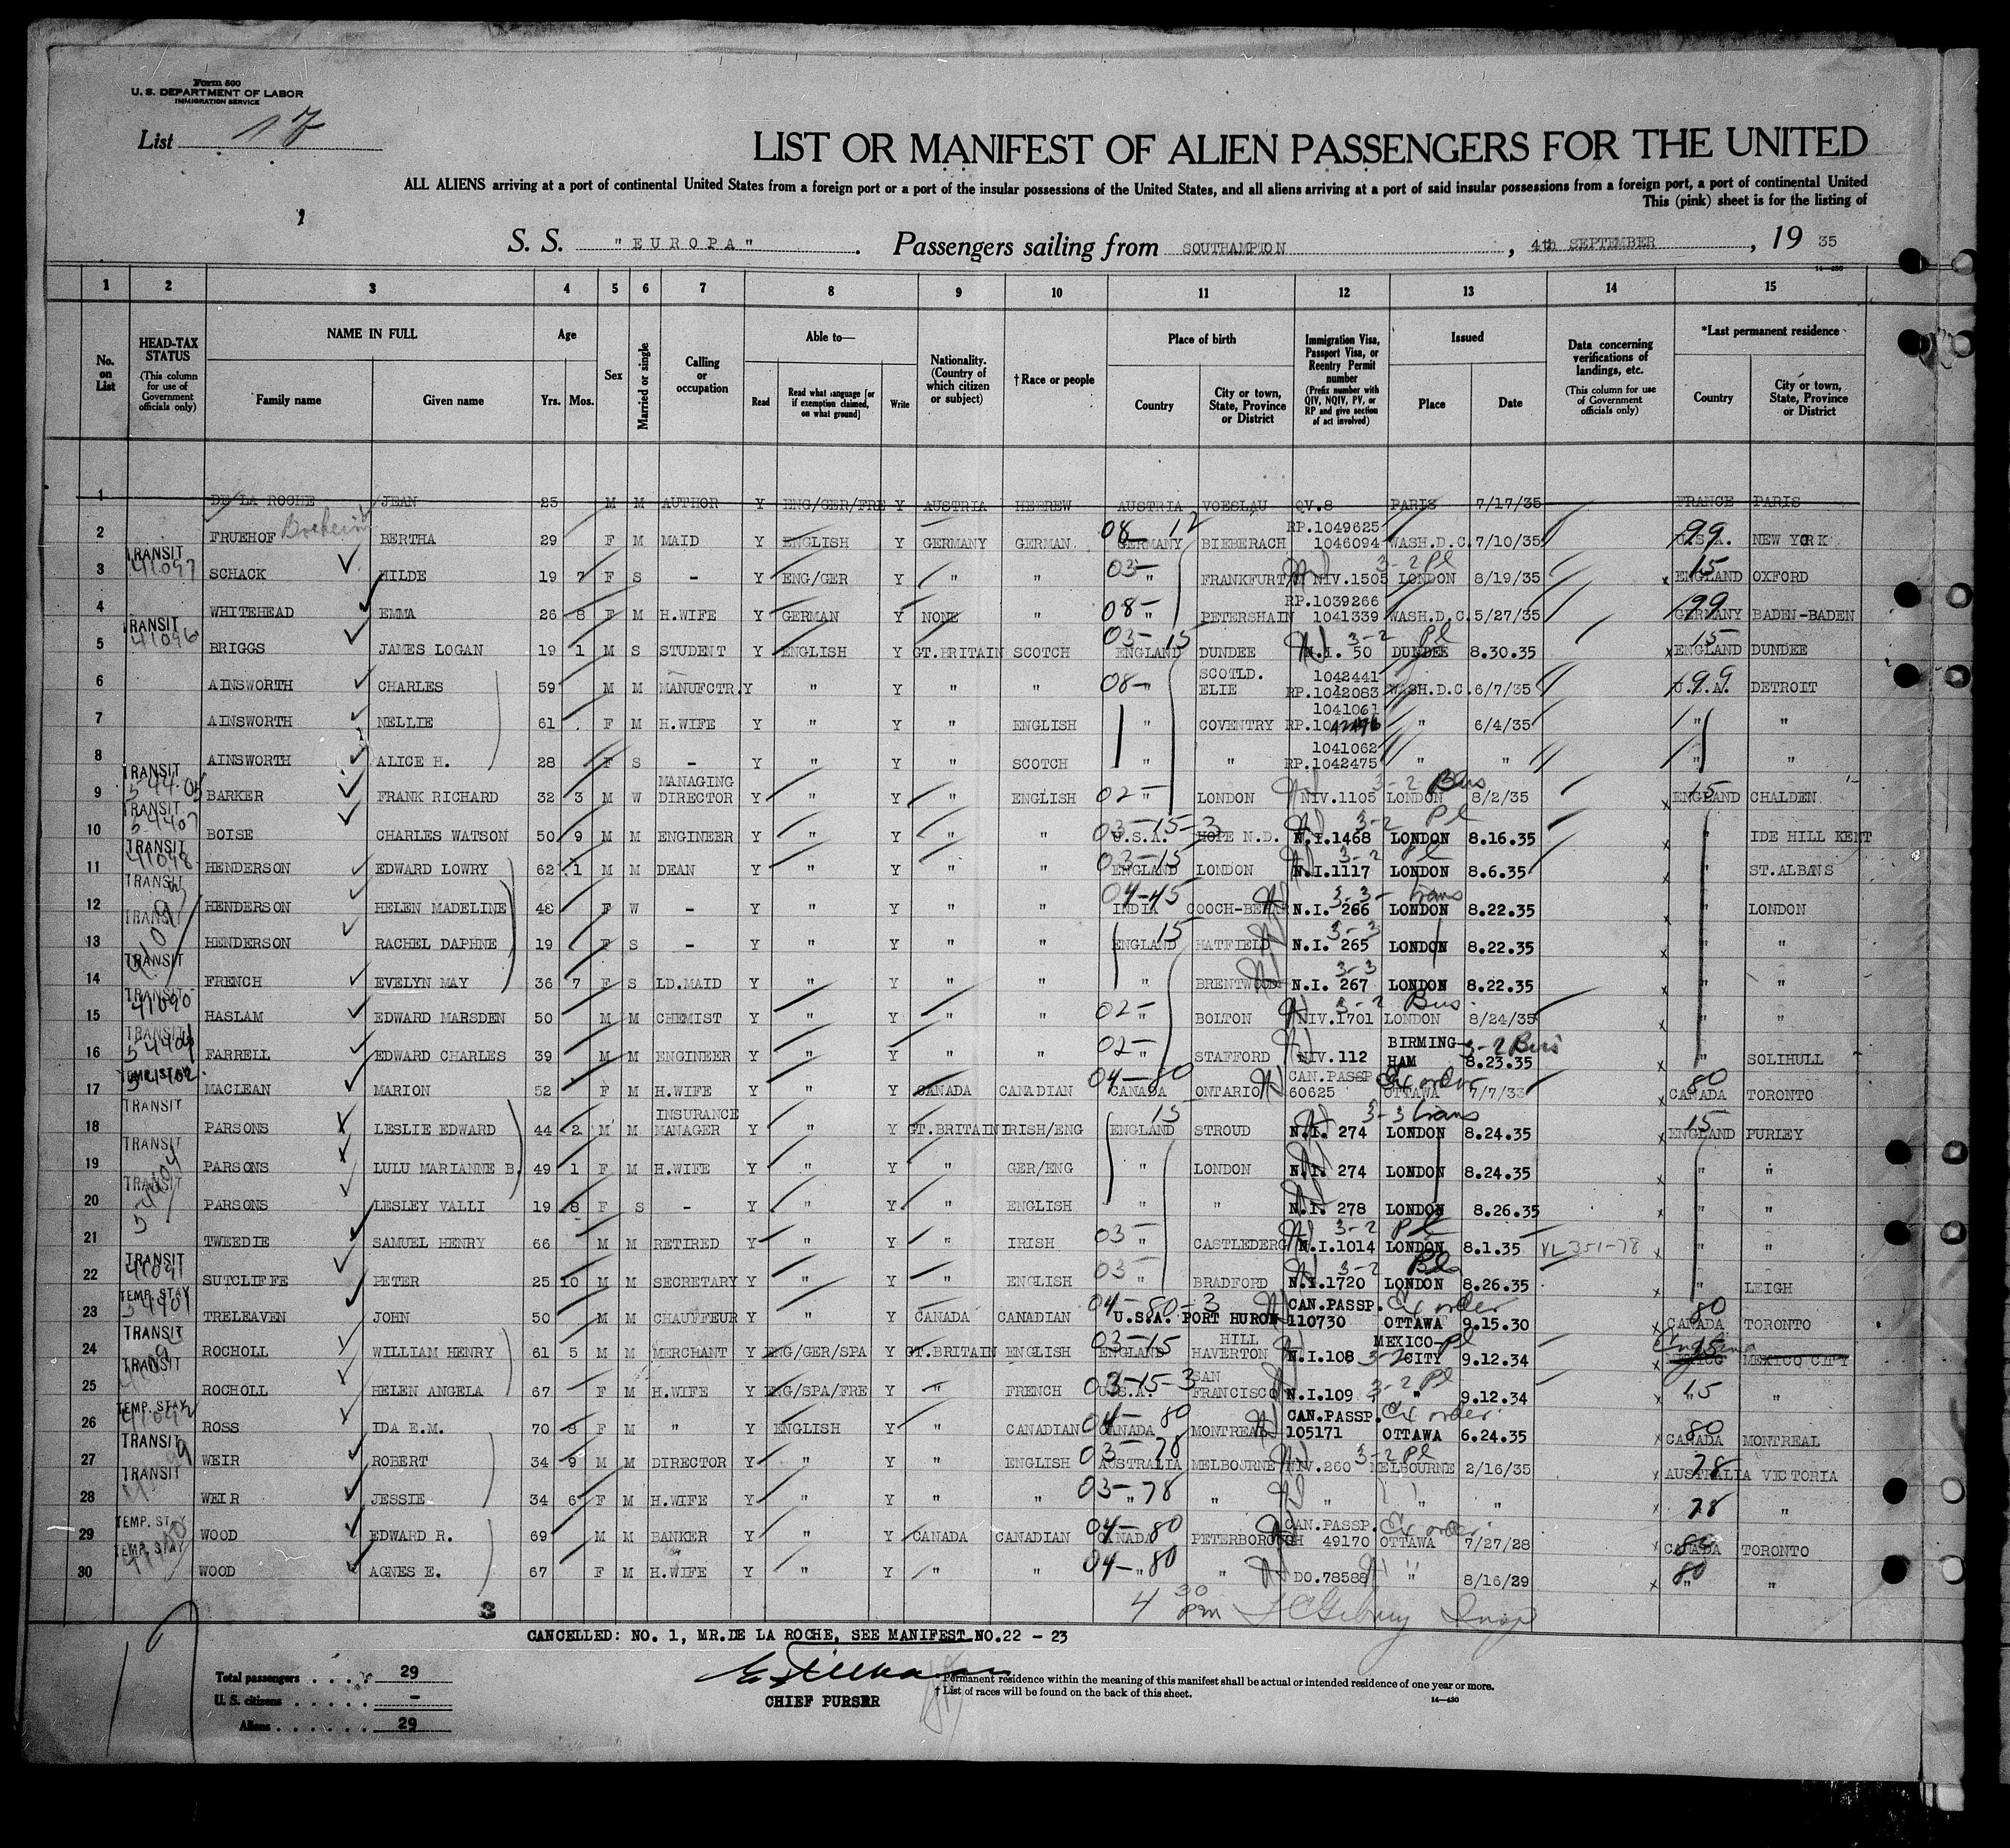 Form 500
U. S. DEPARTMENT OF LABOR
IMMIGRATION SERVICE
List 17
LIST OR MANIFEST OF ALIEN PASSENGERS FOR THE UNITED
ALL ALIENS arriving at a port of continental United States from a foreign port or a port of the insular possessions of the United States, and all aliens arriving at a port of said insular possessions from a foreign port, a port of continental United
This (pink) sheet is for the listing of
S. S. "EUROPA". Passengers sailing from SOUTHAMPTON, 4th SEPTEMBER, 19 35
1 2 3 4 5 6 7 8 9 10 11 12 13 14 15
No. on List
HEAD-TAX STATUS (This column for use of Government officials only)
NAME IN FULL Family name Given name
Age Yrs. Mos.
Sex
Married or single
Calling or occupation
Able to— Read Read what language [or if exemption claimed, on what ground] Write
Nationality. (Country of which citizen or subject)
†Race or people
Place of birth Country City or town, State, Province or District
Immigration Visa, Passport Visa, or Reentry Permit number (Prefix number with QIV, NQIV, PV, or RP and give section of act involved)
Issued Place Date
Data concerning verifications of landings, etc. (This column for use of Government officials only)
*Last permanent residence Country City or town, State, Province or District
1 DE LA ROCHE JEAN 25 M M AUTHOR Y ENG/GER/FRE Y AUSTRIA HEBREW AUSTRIA VOESLAU QV.8 PARIS 7/17/35 FRANCE PARIS
2 FRUEHOF BERTHA 29 F M MAID Y ENGLISH Y GERMANY GERMAN 08 GERMANY BIEBERACH RP.1049625 1046094 WASH.D.C. 7/10/35 99 U.S.A. NEW YORK
3 TRANSIT 41097 SCHACK HILDE 19 7 F S - Y ENG/GER Y " " 03 " FRANKFURT/ NIV.1505 3-2 Pl LONDON 8/19/35 15 x ENGLAND OXFORD
4 WHITEHEAD EMMA 26 8 F M H.WIFE Y GERMAN Y NONE " 08 " PETERSHAIN RP.1039266 1041339 WASH.D.C. 5/27/35 99 GERMANY BADEN-BADEN
5 TRANSIT 41096 BRIGGS JAMES LOGAN 19 1 M S STUDENT Y ENGLISH Y GT.BRITAIN SCOTCH 03-15 ENGLAND DUNDEE N.I. 50 3-2 Pl DUNDEE 8.30.35 15 x ENGLAND DUNDEE
6 AINSWORTH CHARLES 59 M M MANUFCTR. Y " Y " " 08 " SCOTLD. ELIE 1042441 RP.1042083 WASH.D.C. 6/7/35 99 U.S.A. DETROIT
7 AINSWORTH NELLIE 61 F M H.WIFE Y " Y " ENGLISH " COVENTRY 1041061 " 6/4/35 " "
8 AINSWORTH ALICE H. 28 F S - Y " Y " SCOTCH " " 1041062 RP.1042475 " " " "
9 TRANSIT 54405 BARKER FRANK RICHARD 32 3 M W MANAGING DIRECTOR Y " Y " ENGLISH 02 " LONDON NIV.1105 3-2 Bus LONDON 8/2/35 15 x ENGLAND CHALDEN
10 TRANSIT 54407 BOISE CHARLES WATSON 50 9 M M ENGINEER Y " Y " " 03-15-3 U.S.A. HOPE N.D. N.I.1468 3-2 Pl LONDON 8.16.35 x " IDE HILL KENT
11 TRANSIT 41098 HENDERSON EDWARD LOWRY 62 1 M M DEAN Y " Y " " 03-15 ENGLAND LONDON N.I.1117 3-2 Pl LONDON 8.6.35 x " ST.ALBANS
12 TRANSIT HENDERSON HELEN MADELINE 48 F W - Y " Y " " 04-45 INDIA COOCH-BEHAR N.I. 266 3-3 trans LONDON 8.22.35 x " LONDON
13 TRANSIT HENDERSON RACHEL DAPHNE 19 F S - Y " Y " " 15 ENGLAND HATFIELD N.I. 265 3-3 LONDON 8.22.35 x " "
14 TRANSIT FRENCH EVELYN MAY 36 7 F S LD.MAID Y " Y " " " BRENTWOOD N.I. 267 3-3 LONDON 8.22.35 x " "
15 TRANSIT 41090 HASLAM EDWARD MARSDEN 50 M M CHEMIST Y " Y " " 02 " BOLTON NIV.1701 3-2 Bus. LONDON 8/24/35 x " "
16 TRANSIT FARRELL EDWARD CHARLES 39 M M ENGINEER Y " Y " " 02 " STAFFORD NIV.112 BIRMING-HAM 3-2 Bus 8.23.35 x " SOLIHULL
17 TEMP.STAY 54402 MACLEAN MARION 52 F M H.WIFE Y " Y CANADA CANADIAN 04-80 CANADA ONTARIO CAN.PASSP. 60625 Ex order OTTAWA 7/7/33 80 x CANADA TORONTO
18 TRANSIT PARSONS LESLIE EDWARD 44 2 M M INSURANCE MANAGER Y " Y GT.BRITAIN IRISH/ENG 15 ENGLAND STROUD N.I. 274 3-3 trans LONDON 8.24.35 15 x ENGLAND PURLEY
19 TRANSIT PARSONS LULU MARIANNE B. 49 1 F M H.WIFE Y " Y " GER/ENG " LONDON N.I. 274 LONDON 8.24.35 x " "
20 TRANSIT PARSONS LESLEY VALLI 19 8 F S - Y " Y " ENGLISH " " N.I. 278 LONDON 8.26.35 x " "
21 TWEEDIE SAMUEL HENRY 66 M M RETIRED Y " Y " IRISH 03 " CASTLEDERG N.I.1014 3-2 Pl LONDON 8.1.35 VL 351-78 x " "
22 TRANSIT 41091 SUTCLIFFE PETER 25 10 M M SECRETARY Y " Y " ENGLISH 03 " BRADFORD N.I.1720 3-2 LONDON 8.26.35 x " LEIGH
23 TEMP. STAY 54401 TRELEAVEN JOHN 50 M M CHAUFFEUR Y " Y CANADA CANADIAN 04-80-3 U.S.A. PORT HURON CAN.PASSP. 110730 Ex order OTTAWA 9.15.30 80 x CANADA TORONTO
24 TRANSIT ROCHOLL WILLIAM HENRY 61 5 M M MERCHANT Y ENG/GER/SPA Y GT.BRITAIN ENGLISH 03-15 ENGLAND HILL HAVERTON N.I.108 3-2 MEXICO- Pl CITY 9.12.34 England 15 MEXICO MEXICO CITY
25 TRANSIT ROCHOLL HELEN ANGELA 67 F M H.WIFE Y ENG/SPA/FRE Y " FRENCH 03-15-3 U.S.A. SAN FRANCISCO N.I.109 3-2 Pl " 9.12.34 x 15 " "
26 TEMP. STAY 41092 ROSS IDA E.M. 70 8 F M " Y ENGLISH Y " CANADIAN 04-80 CANADA MONTREAL CAN.PASSP. 105171 Ex order OTTAWA 6.24.35 80 x CANADA MONTREAL
27 TRANSIT WEIR ROBERT 34 9 M M DIRECTOR Y " Y " ENGLISH 03-78 AUSTRALIA MELBOURNE NIV.260 3-2 Pl MELBOURNE 2/16/35 78 x AUSTRALIA VICTORIA
28 TRANSIT WEIR JESSIE 34 6 F M H.WIFE Y " Y " " 03-78 " " " " " x 78 "
29 TEMP. STAY WOOD EDWARD R. 69 M M BANKER Y " Y CANADA CANADIAN 04-80 CANADA PETERBOROUGH CAN.PASSP. 49170 Ex order OTTAWA 7/27/28 80 x CANADA TORONTO
30 TEMP. STAY WOOD AGNES E. 67 F M H.WIFE Y " Y " " 04-80 " " DO.78588 " 8/16/29 80 x " "
3
4 30 pm
CANCELLED: NO. 1, MR.DE LA ROCHE, SEE MANIFEST NO.22 - 23
Total passengers . . . . 29
U. S. citizens . . . . . -
Aliens . . . . . . 29
CHIEF PURSER
* Permanent residence within the meaning of this manifest shall be actual or intended residence of one year or more.
† List of races will be found on the back of this sheet.
14—430